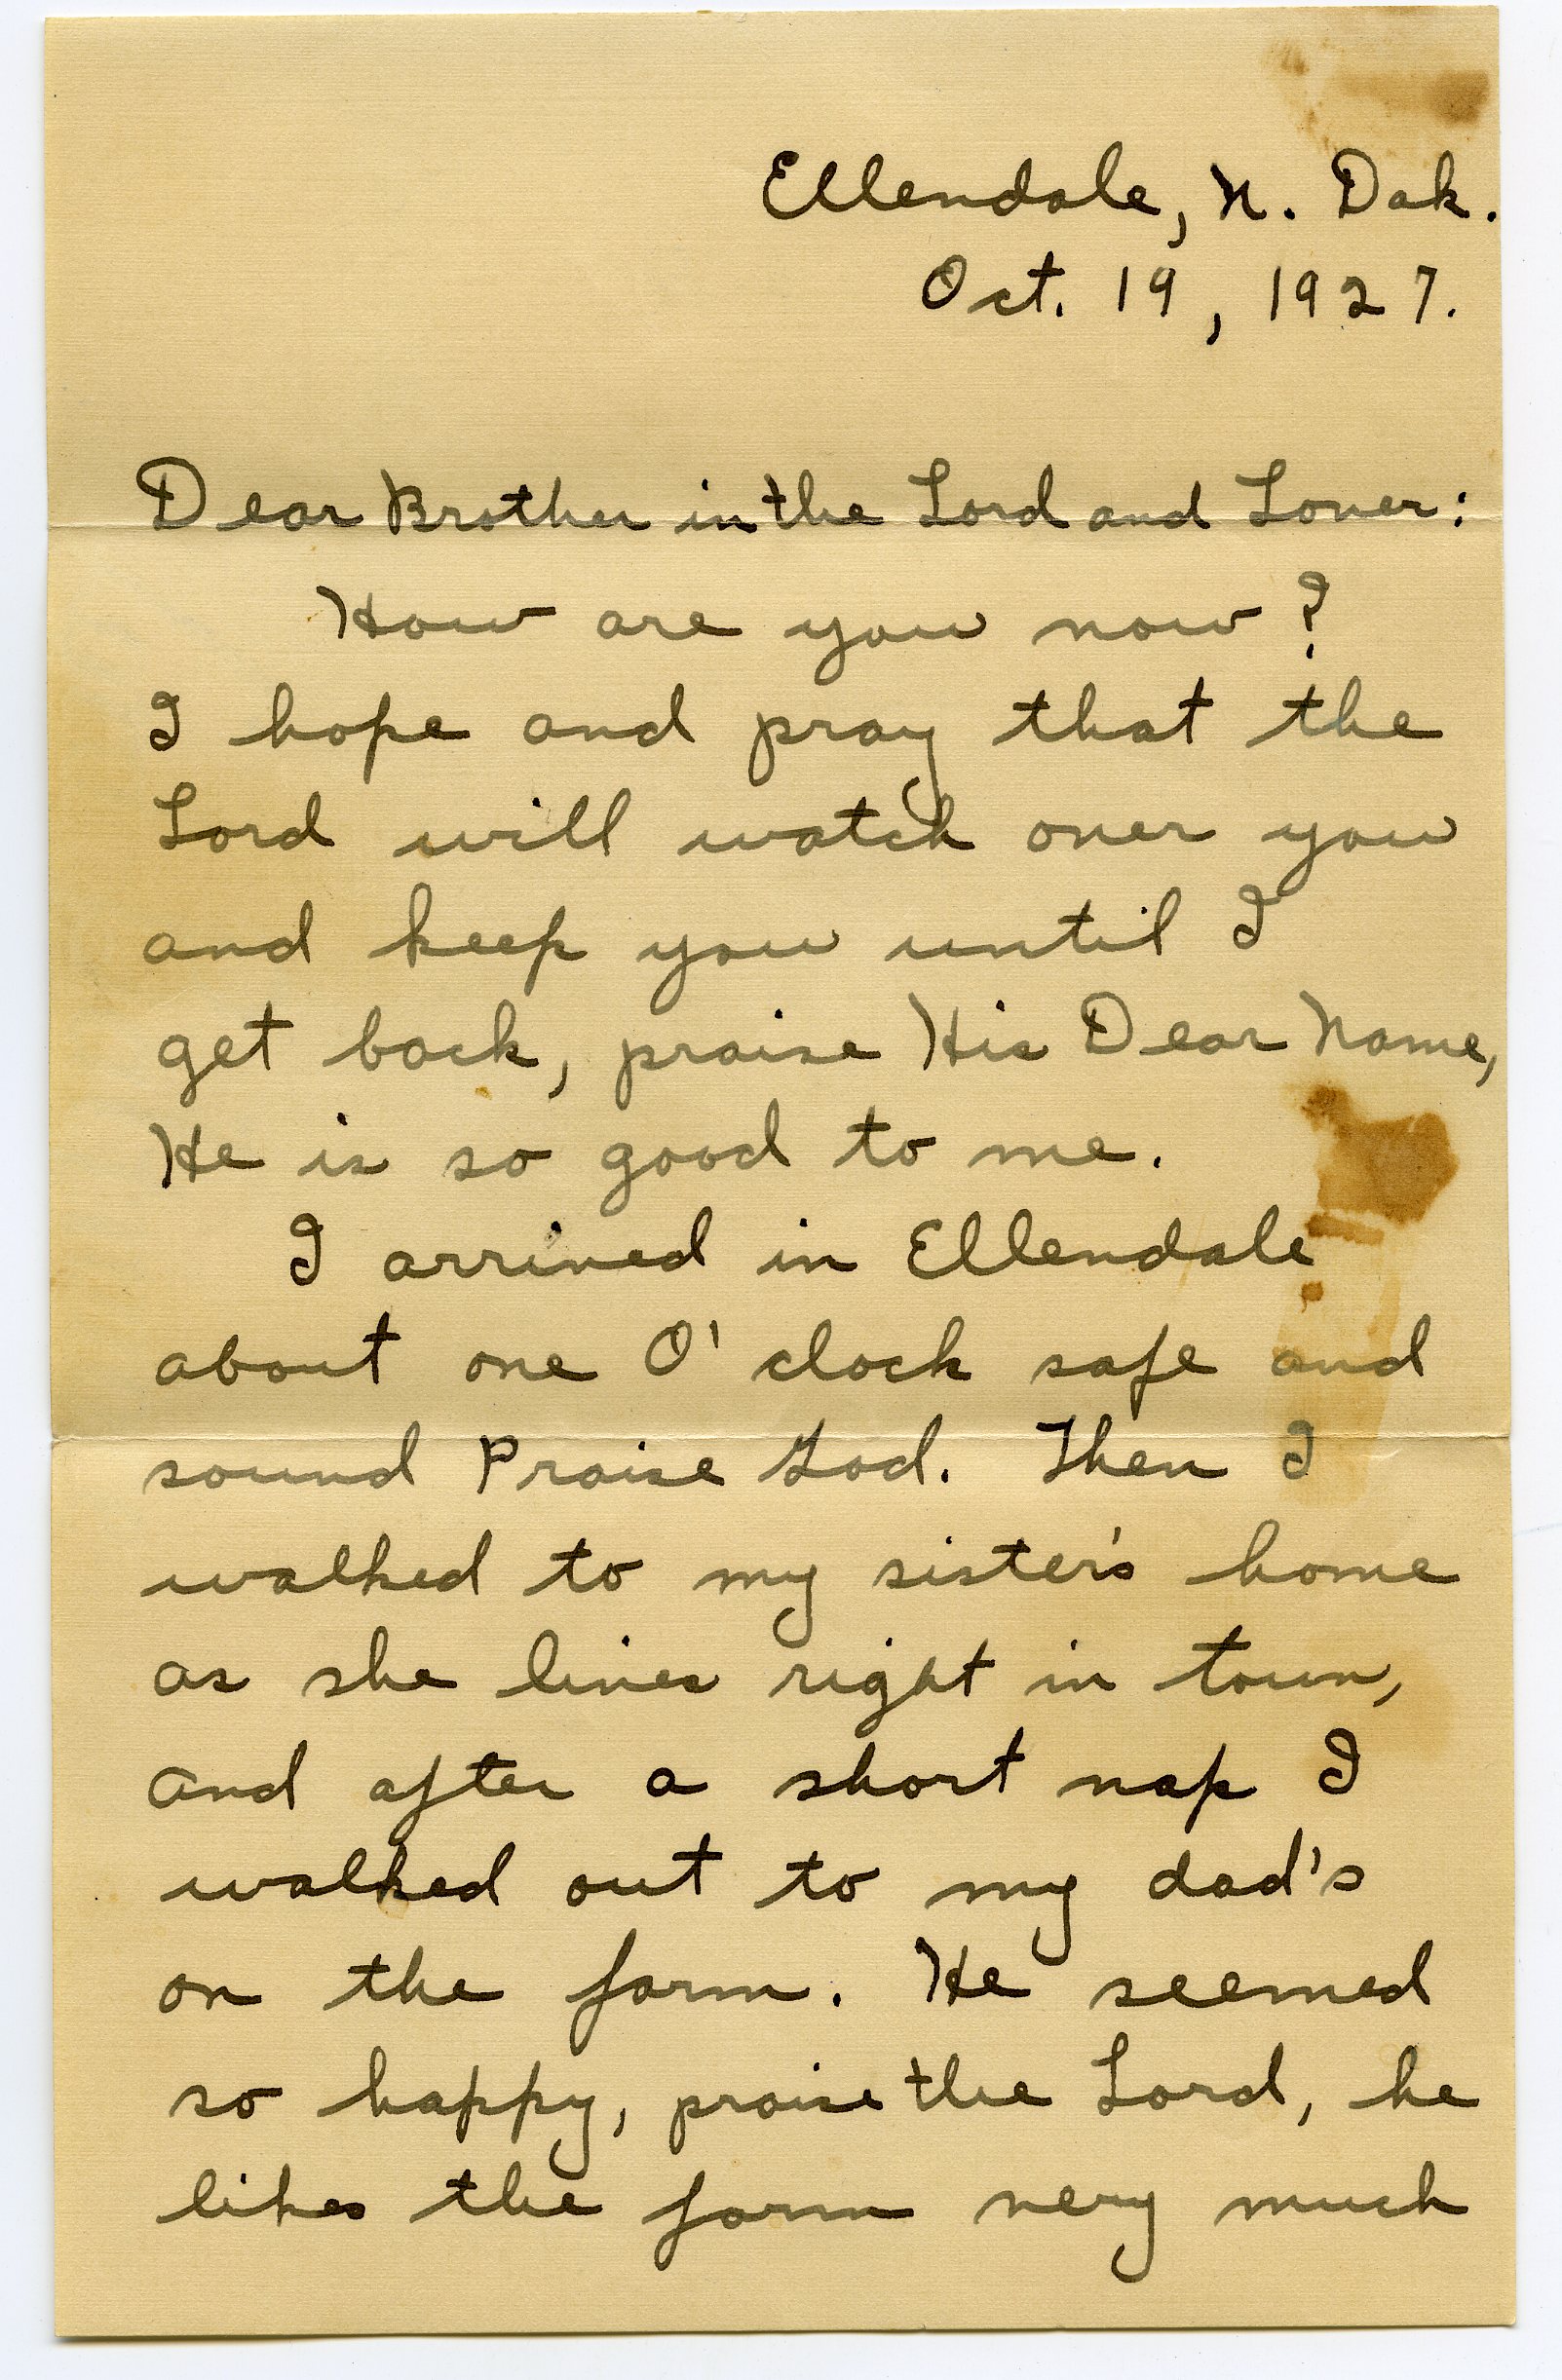 Ellendale, N. Dak.
Oct. 19, 1927.
Dear Brother in the Lord and Lover:
How are you now?
I hope and pray that the
Lord will watch over you
and keep you until I
get back, praise His Dear Name,
He is so good to me.
I arrived in Ellendale
about one O'clock safe and
sound Praise God. Then I
walked to my sister's home
as she lives right in town,
and after a short nap I
walked out to my dad's
on the farm. He seemed
so happy, praise the Lord, he
likes the farm very much